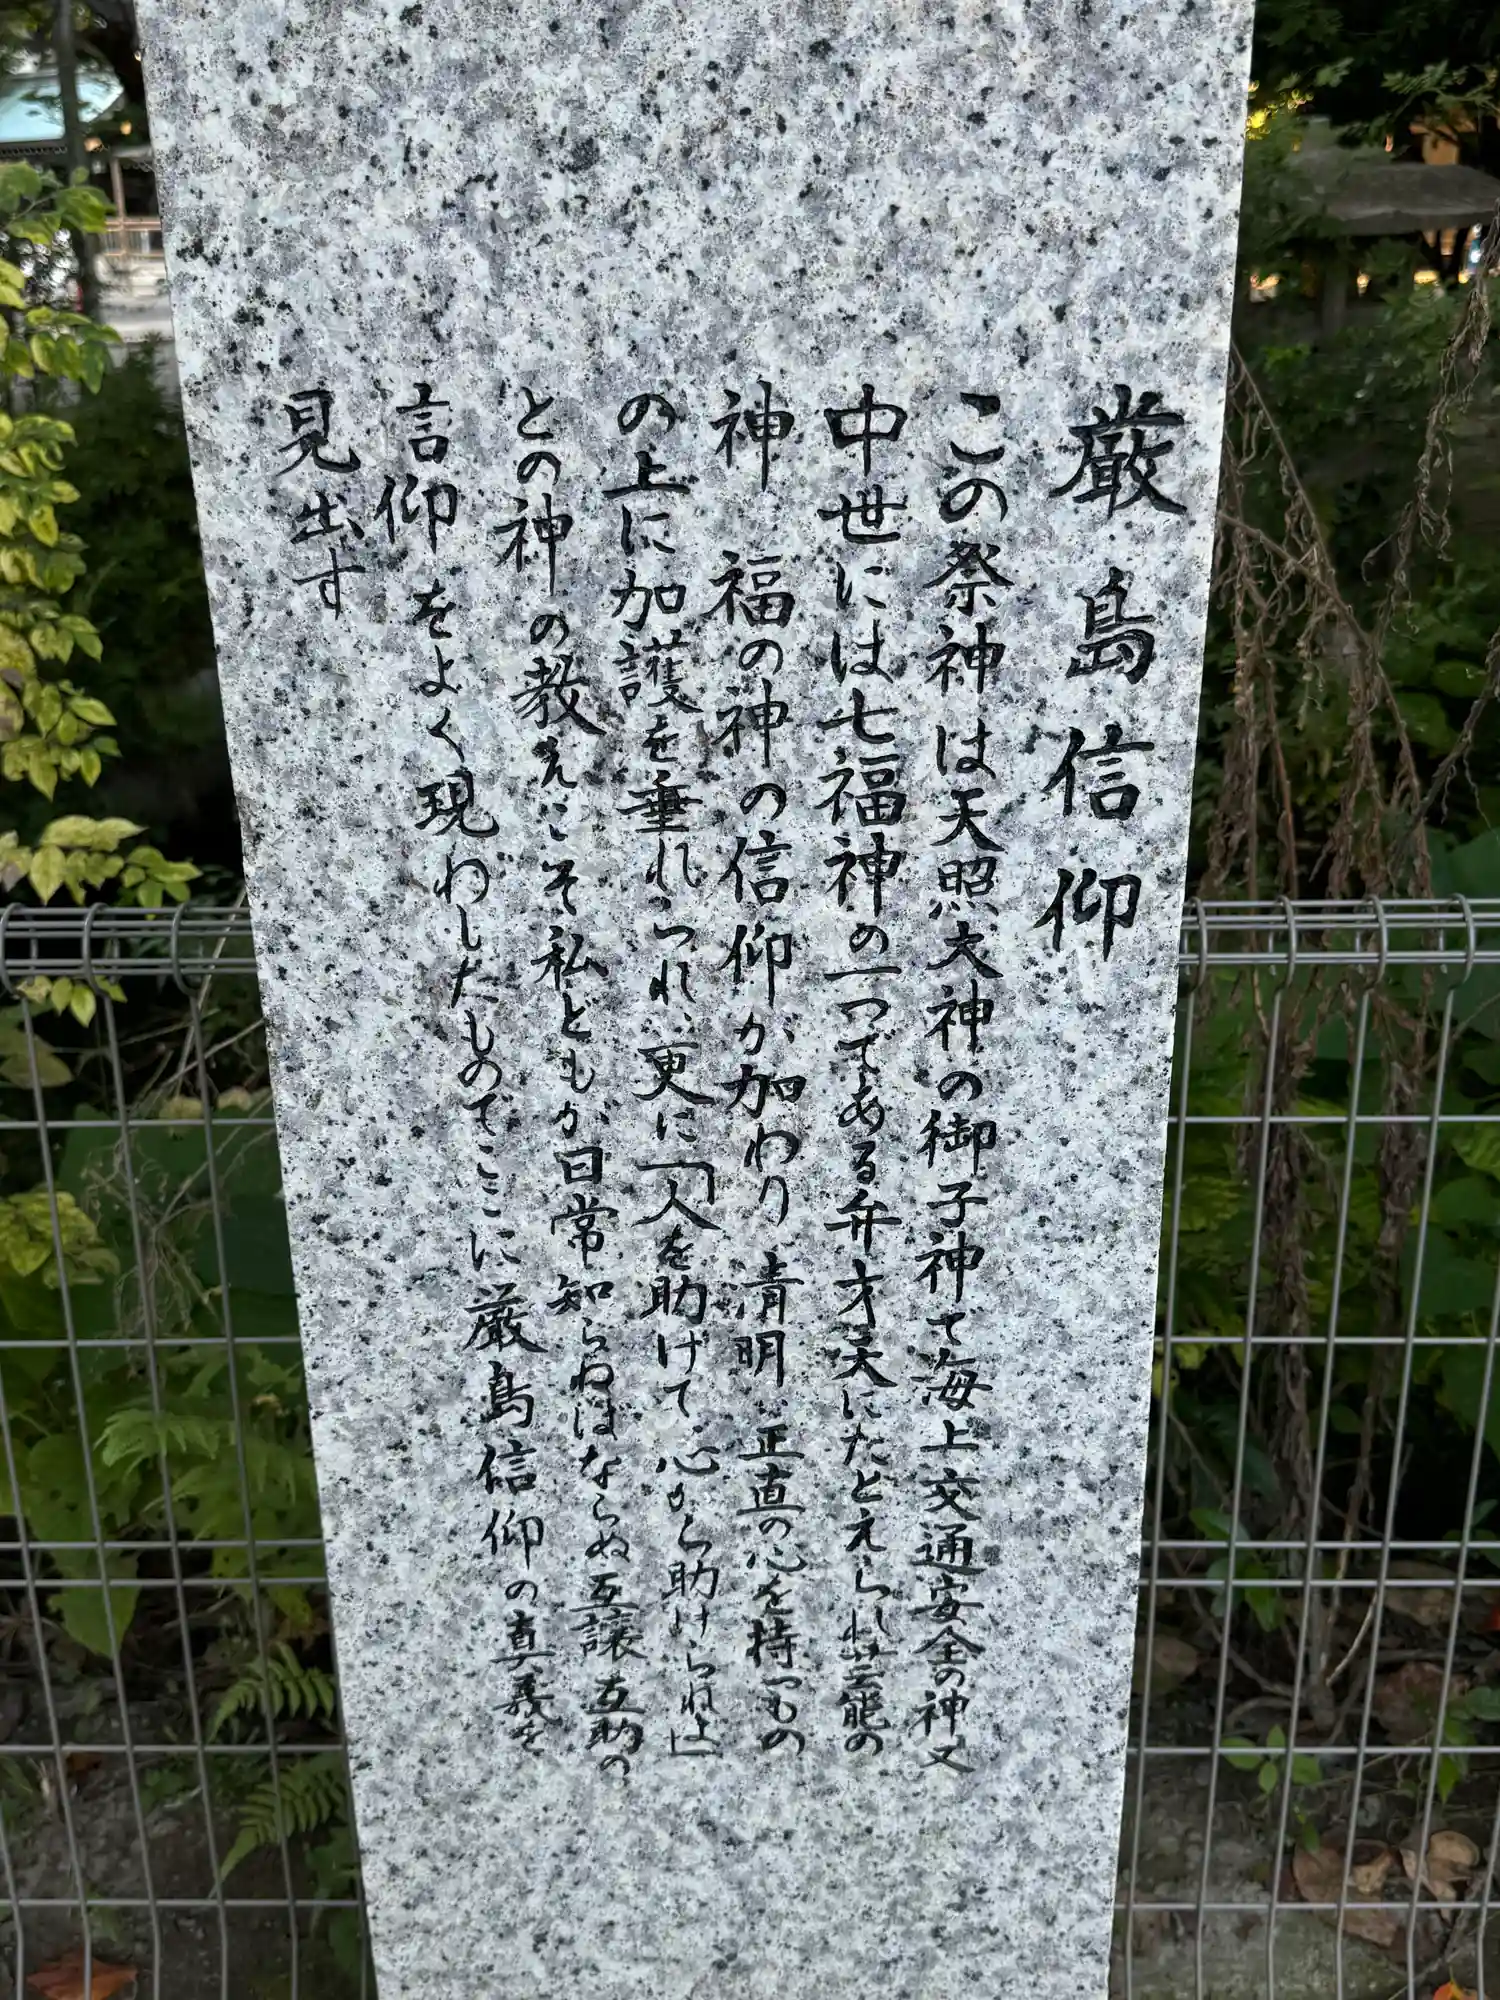 厳島信仰
この祭神は天照大神の御子神で海上交通安全の神又
中世には七福神の一つである弁才天にたとえられ芸能の
神　福の神の信仰が加わり　清明、正直の心を持つもの
の上に加護を垂れられ、更に「人を助けて、心から助けられよ」
との神の教えこそ私どもが日常知らねばならぬ互譲互助の
信仰をよく現わしたものでここに厳島信仰の真義を
見出す